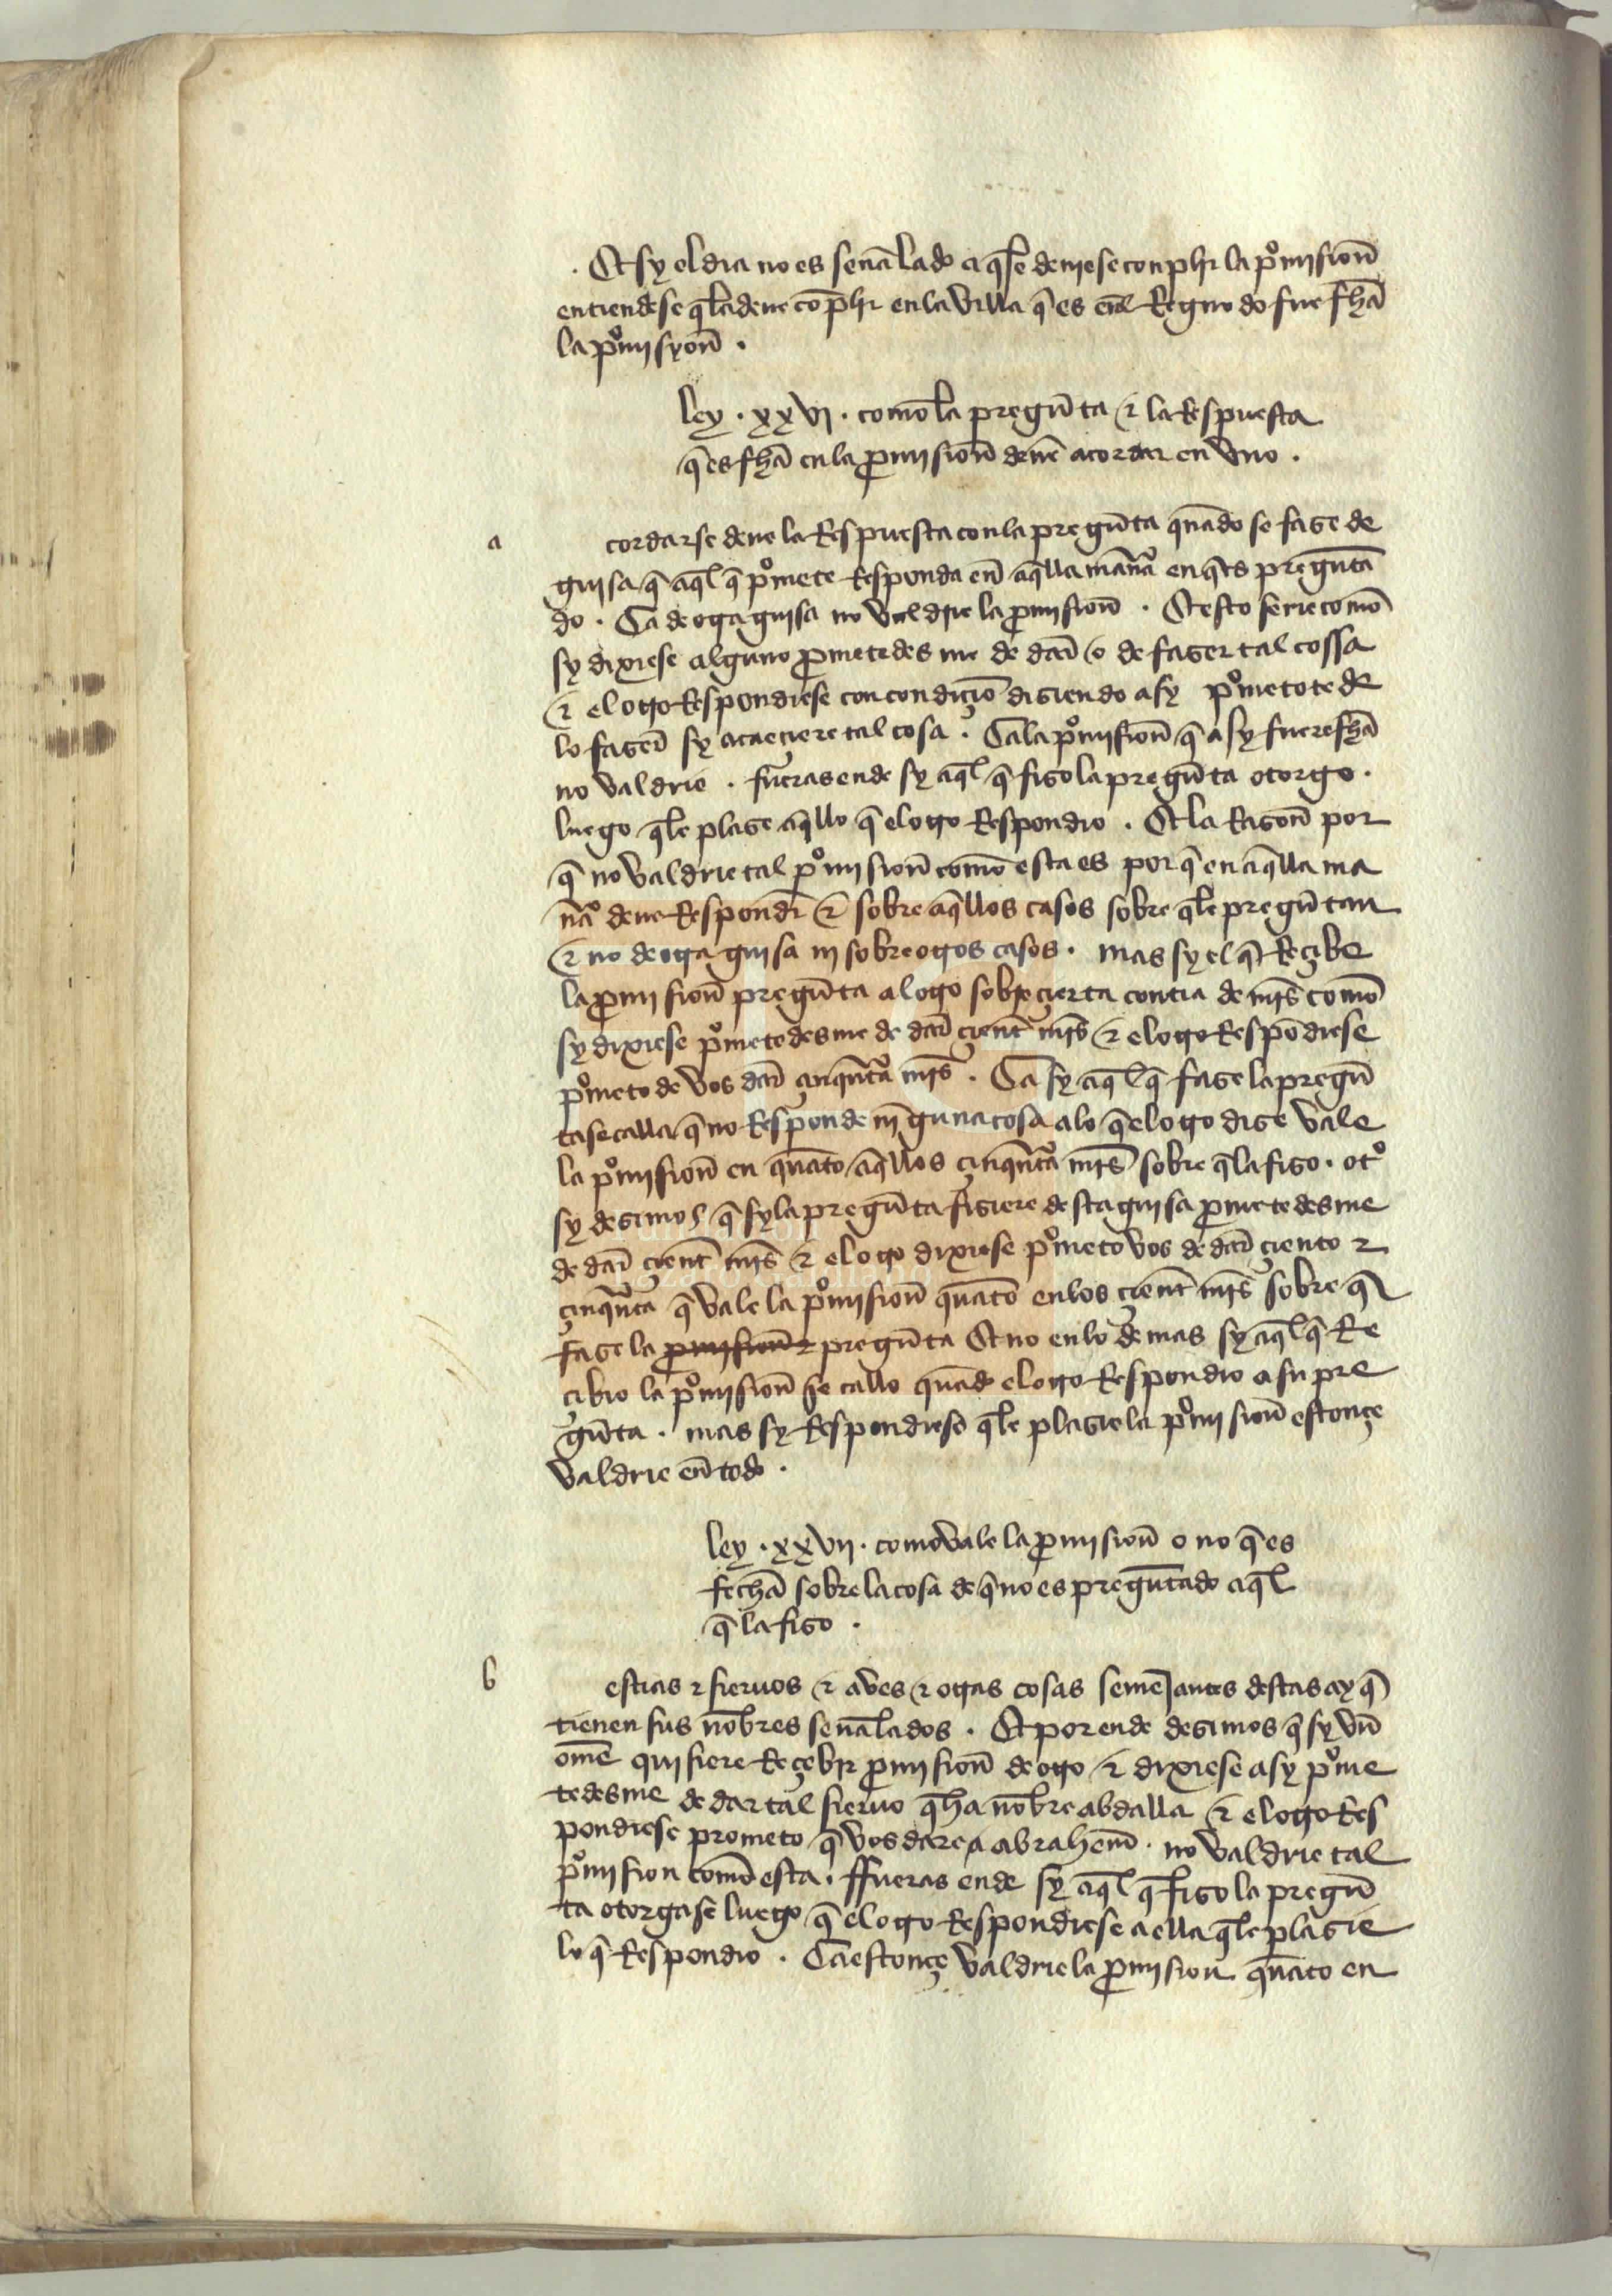 . Et sy el dia no es señalado a q̃l se deue se conplir la pºmisioñ
entiendese q̃ la deue cõplir en la villa q̃ es eñl Regno do fue fh̃a
la pºmisyoñ .
ley . xxvi . como la pregũta ⁊ la Respuesta
q̃ es fh̃a en la pmisioñ deuẽ acordar en vno .
a cordarse deue la Respuesta con la pregũta quãdo se faze de
guisa q̃ aq̃l q̃ pºmete Responda eñ aq̃lla mañaº en q̃ es pregũta
do . Ca de ot͂ guisa no valdrie la pmisioñ . Et esto serie como
sy dixiese alguno pmetedes me de dar̃ o de fazer tal cossa
⁊ el ot͂o Respondiese con condiçiõ diziendo asy pºmetote de
lo fazer̃ sy acaeçiere tal cosa . Ca la pºmisioñ q̃ asy fuere fh̃a
no valdrie . fueras ende sy aq̃l q̃ fizo la pregũta otorgo .
luego q̃l le plaze aq̃llo q̃ el ot͂o Respondio . Et la Razoñ por
q̃ no valdrie tal pºmisioñ como esta es por q̃ en aq̃lla ma
ñaº deue Respondr̃ ⁊ sobre aq̃llos casos sobre q̃ le pregũtan
⁊ no de ot͂a guisa ni sobre ot͂os casos . mas sy el q̃ Reçibe
la pmisioñ pregũta al ot͂o sobre çierta contia de mr̃s como
sy dixiese pºmetedesme de dar̃ çient̃ mr̃s ⁊ el ot͂o Respõdiese
pºmeto de vos dar̃ çinquẽta mr̃s . Ca sy aq̃l q̃ faze la pregũ
ta se calla q̃ no Responde nĩguna cosa a lo q̃ el ot͂o dize vale
la pºmisioñ en quãto aq̃llos çinquẽta mr̃s sobre q̃ la fizo . otº
sy dezimos q̃ sy la pregũta fiziere desta guisa pmetedesme
de dar̃ çient̃ mr̃s ⁊ el ot͂o dixiese pºmeto vos de dar̃ çiento ⁊
çinquẽta q̃ vale la pºmisioñ quãto en los çient̃ mr̃s sobre q̃
faze la pmisioñ ⁊ pregũta Et no en lo de mas sy aq̃l q̃ Re
çibio la pºmisioñ se callo quãdo el ot͂o Respondio a su pre
gũta . mas sy Respondiese q̃ le plazie la pºmisioñ estonçe
valdrie eñ todo .
ley . xxvii . como vale la pmisioñ o no q̃ es
fecha sobre la cosa de q̃ no es pregũtado aq̃l
q̃ la fizo .
b estias ⁊ sieruos ⁊ aves ⁊ ot͂as cosas semejantes destas ay q̃
tienen sus nõbres señalados . Et por ende dezimos q̃ sy vñ
ome quisiere Reçebir pmisioñ de ot͂o ⁊ dixiese asy pºme
tedesme de dar tal sieruo q̃ ha nõbre abdalla ⁊ el ot͂o Res
pondiese prometo q̃ vos dare a abrahem̃ . no valdrie tal
pºmision como esta . ffueras ende sy aq̃l q̃ fizo la pregũ
ta otorgase luego q̃ el ot͂o Respondiese a ella q̃ le plazie
lo q̃ Respondio . Ca estonçe valdrie la pmision quãto en